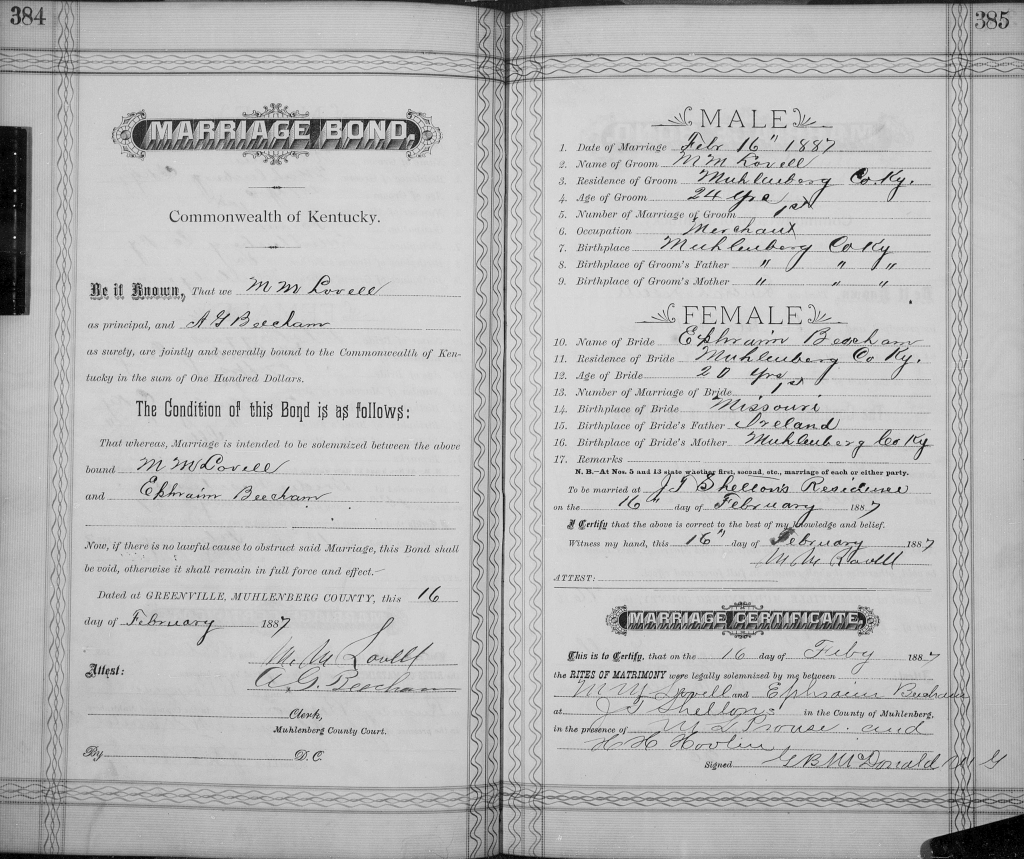 384
MARRIAGE BOND.
Commonwealth of Kentucky.
Be it Known, That we M M Lovell
as principal, and A G Beecham
as surety, are jointly and severally bound to the Commonwealth of Ken-
tucky in the sum of One Hundred Dollars.
The Condition of this Bond is as follows:
That whereas, Marriage is intended to be solemnized between the above
bound M M Lovell
and Ephraim Beecham
Now, if there is no lawful cause to obstruct said Marriage, this Bond shall
be void, otherwise it shall remain in full force and effect.
Dated at GREENVILLE, MUHLENBERG COUNTY, this 16
day of February 1887
M. M Lovell
Attest: A. G. Beecham
Clerk,
Muhlenberg County Court.
By D. C.
385
MALE
1. Date of Marriage Febr 16" 1887
2. Name of Groom M M Lovell
3. Residence of Groom Muhlenberg Co. Ky.
4. Age of Groom 24 yrs
5. Number of Marriage of Groom 1st
6. Occupation Merchant
7. Birthplace Muhlenberg Co Ky
8. Birthplace of Groom's Father " " "
9. Birthplace of Groom's Mother " " "
FEMALE
10. Name of Bride Ephraim Beecham
11. Residence of Bride Muhlenberg Co Ky.
12. Age of Bride 20 yrs
13. Number of Marriage of Bride 1st
14. Birthplace of Bride Missouri
15. Birthplace of Bride's Father Ireland
16. Birthplace of Bride's Mother Muhlenberg Co Ky
17. Remarks
N. B.—At Nos. 5 and 13 state whether first, second, etc., marriage of each or either party.
To be married at J T Shelton's Residence
on the 16" day of February 1887
I Certify that the above is correct to the best of my knowledge and belief.
Witness my hand, this 16" day of February 1887
M. M Lovell
ATTEST:
MARRIAGE CERTIFICATE.
This is to Certify, that on the 16 day of Feby 1887
the RITES OF MATRIMONY were legally solemnized by me between
M M Lovell and Ephraim Beecham
at J T Shelton's in the County of Muhlenberg,
in the presence of Prouse and
H H
Signed G B McDonald M G